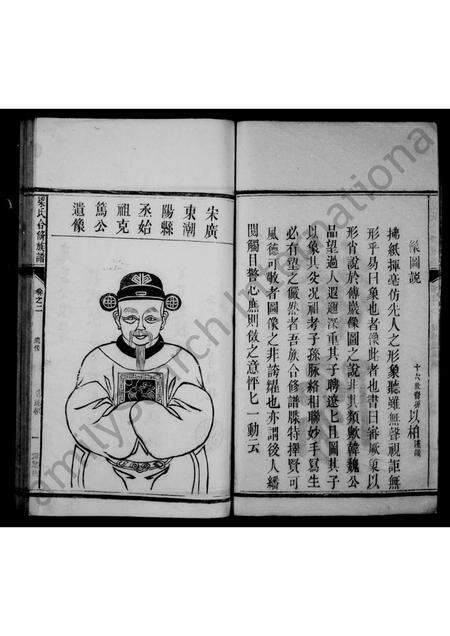 像圖說
十六世裔孫以柏謹識
搏紙揮毫仿先人之形象聽雖無聲視詎無
形乎易曰象也者像此者也書曰審厥象以
形肖說於傅巖像圖之說非其類歟韓魏公
品望過人遐邇深重其子聘遼七且圖其子
以象其父况祖考子孫脉絡相聯妙手寫生
必有望之儼然者吾族合修譜牒特擇賢可
風德可敬者圖像之非誇耀也亦謂後人繙
閱觸目警心應則倣之意怦七一動云
宋廣
東潮
陽縣
丞始
祖克
篤公
遺像
梁氏合修族譜
卷之二